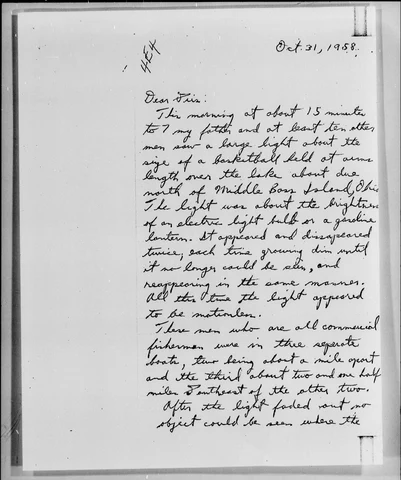 4E4
Oct. 31, 1958.
Dear Sirs:
This morning at about 15 minutes
to 7 my father and at least ten other
men saw a large light about the
size of a basketball held at arms
length over the lake about due
north of Middle Bass Island, Ohio.
The light was about the brightness
of an electric light bulb or a gasoline
lantern. It appeared and disappeared
twice, each time growing dim until
it no longer could be seen, and
reappearing in the same manner.
All this time the light appeared
to be motionless.
These men who are all commercial
fishermen were in three separate
boats, two being about a mile apart
and the third about two and one half
miles Southeast of the other two.
After the light faded out no
object could be seen where the